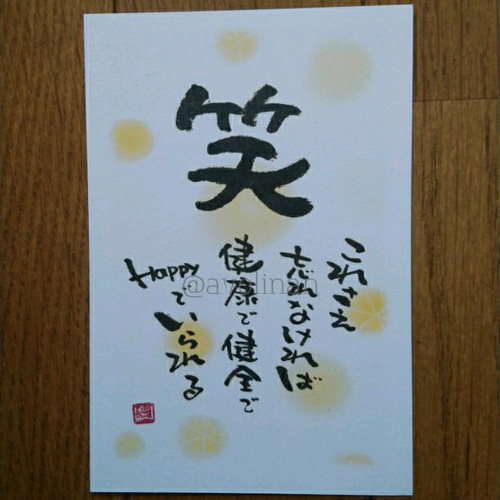 笑
これさえ
忘れなければ
健康で健全で
Happyでいられる